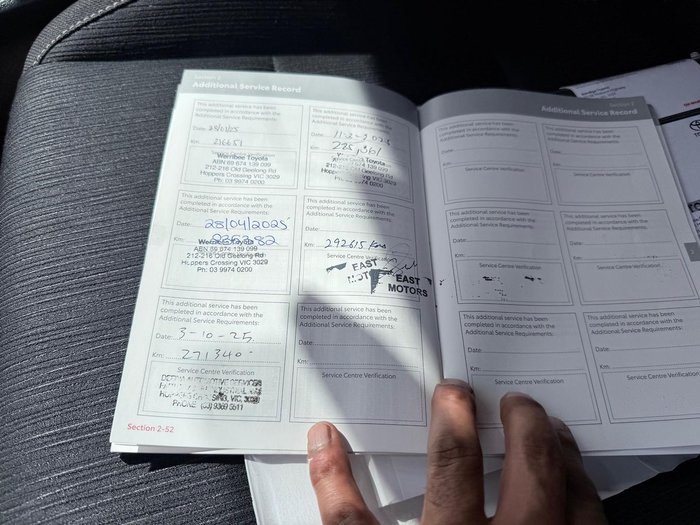 Section 2
Additional Service Record
This additional service has been
completed in accordance with the
Additional Service Requirements:
Date: 28/01/25
Km: 216651
Werribee Toyota
ABN 69 674 139 099
212-216 Old Geelong Rd
Hoppers Crossing VIC 3029
Ph: 03 9974 0200
This additional service has been
completed in accordance with the
Additional Service Requirements:
Date: 11-2-2025
Km: 225,361
Service Centre
Toyota
212-216 Old Geelong Rd
VIC 3029
9974 0200
This additional service has been
completed in accordance with the
Additional Service Requirements:
Date: 28/04/2025
Km:
Werribee Toyota
ABN 69 674 139 099
212-216 Old Geelong Rd
Hoppers Crossing VIC 3029
Ph: 03 9974 0200
This additional service has been
completed in accordance with the
Additional Service Requirements:
Date:
Km: 292615 Kms
Service Centre Verification
EAST
EAST
MOTORS
This additional service has been
completed in accordance with the
Additional Service Requirements:
Date: 3-10-25
Km: 271340
Service Centre Verification
AUTOMOTIVE SERVICES
VIC, 3029
PHONE (03) 9369 5611
This additional service has been
completed in accordance with the
Additional Service Requirements:
Date:
Km:
Service Centre Verification
Section 2-52
Section 2
Additional Service Record
This additional service has been
completed in accordance with the
Additional Service Requirements:
Date:
Km:
Service Centre Verification
This additional service has been
completed in accordance with the
Additional Service Requirements:
Date:
Km:
Service Centre Verification
This additional service has been
completed in accordance with the
Additional Service Requirements:
Date:
Km:
Service Centre Verification
This additional service has been
completed in accordance with the
Additional Service Requirements:
Date:
Km:
Service Centre Verification
This additional service has been
completed in accordance with the
Additional Service Requirements:
Date:
Km:
Service Centre Verification
This additional service has been
completed in accordance with the
Additional Service Requirements:
Date:
Km:
Service Centre Verification